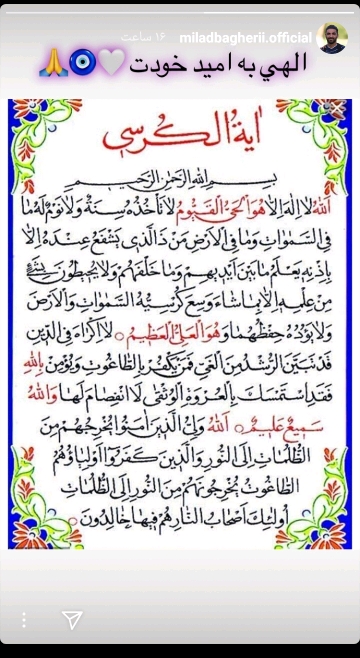 miladbagherii.official ۱۶ ساعت
الهي به اميد خودت 🤍🧿🙏
اٰیةُ الکُرسی
بِسمِ اللهِ الرَّحمٰنِ الرَّحیم
اَللهُ لا اِلٰهَ اِلّا هُوَ الحَیُّ القَیُّومُ لا تَأخُذُهُ سِنَةٌ وَلا نَومٌ لَهُ ما
فِی السَّمٰواتِ وَما فِی الاَرضِ مَن ذَا الَّذی یَشفَعُ عِندَهُ اِلّا
بِاِذنِهِ یَعلَمُ ما بَینَ اَیدیهِم وَما خَلفَهُم وَلا یُحیطُونَ بِشَیءٍ
مِن عِلمِهِ اِلّا بِما شاءَ وَسِعَ کُرسِیُّهُ السَّمٰواتِ وَالاَرضَ
وَلا یَؤُدُهُ حِفظُهُما وَهُوَ العَلِیُّ العَظیمُ ○ لا اِکراهَ فِی الدّینِ
قَد تَبَیَّنَ الرُّشدُ مِنَ الغَیِّ فَمَن یَکفُر بِالطّاغُوتِ وَیُؤمِن بِاللهِ
فَقَدِ استَمسَکَ بِالعُروَةِ الوُثقیٰ لَا انفِصامَ لَها وَاللهُ
سَمیعٌ عَلیمٌ ○ اَللهُ وَلِیُّ الَّذینَ اٰمَنُوا یُخرِجُهُم مِنَ
الظُّلُماتِ اِلَی النُّورِ وَالَّذینَ کَفَرُوا اَولِیاؤُهُمُ
الطّاغُوتُ یُخرِجُونَهُم مِنَ النُّورِ اِلَی الظُّلُماتِ
اُولٰئِکَ اَصحابُ النّارِ هُم فیها خالِدُونَ ○